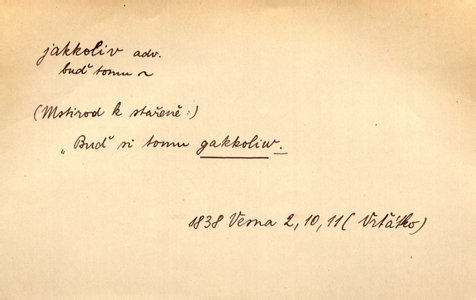 jakkoliv adv.
buď tomu ~
(Mstirod k stařeně:)
„Buď si tomu gakkoliw.
1838 Vesna 2, 10, 11 (Vrťátko)